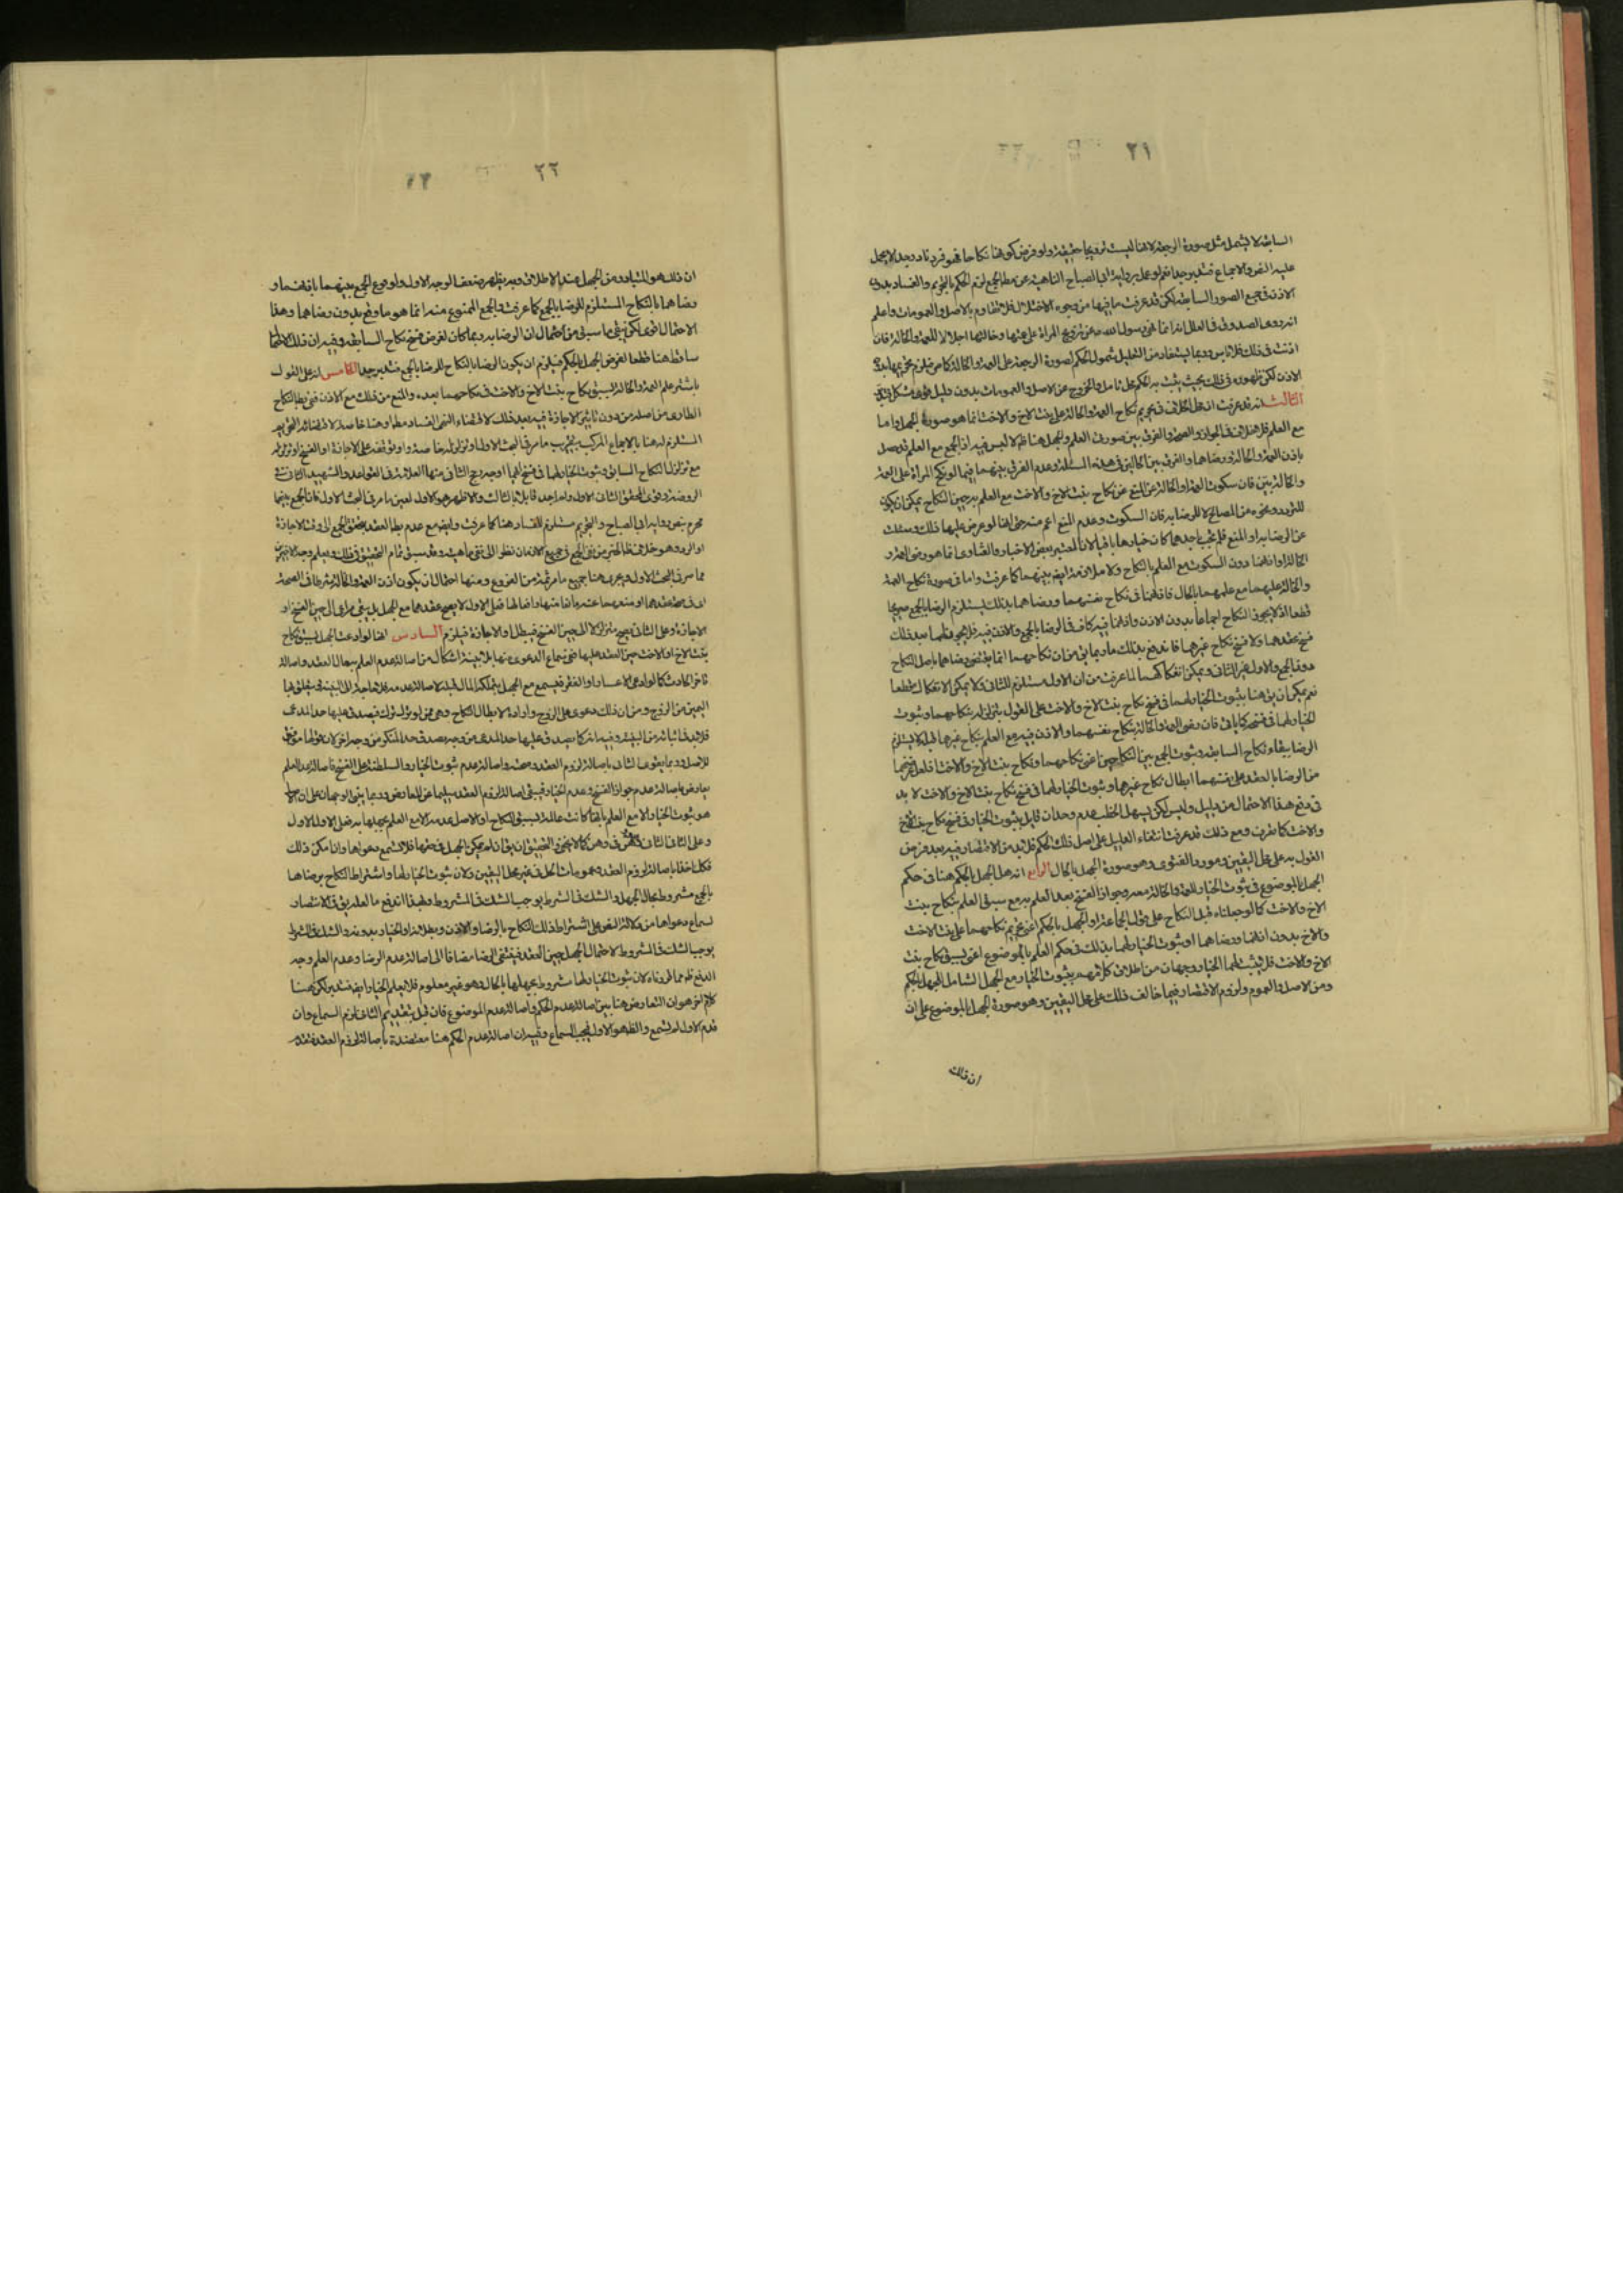 ٢١
السابقة لا يشمل مثل صورة الرجعة لانها ليست تزويجا حقيقة ولو فرض كونها نكاحا فهو فرد نادر جدا لا يحمل
عليه النص والاجماع فتدبر جدا نعم لو عمل برواية ابى الصباح الناهية عن مطلق الجمع لزم الحكم بالتحريم والفساد بدون
الاذن فى جميع الصور السابقة لكن قد عرفت ما فيها من وجوه الاختلال فلا تقاوم بالاصل والعمومات واعلم
انه روى الصدوق فى العلل انه انما نهى رسول الله عن تزويج المراة على عمتها وخالتها اجلالا للعمة والخالة فان
اذنت فى ذلك فلا باس وربما يستفاد من التعليل شمول الحكم لصورة الرجعة على العمة والخالة كما مر فيلزم تحريمها بدون
الاذن لكن ظهوره فى ذلك بحيث يثبت به الحكم محل تامل والخروج عن الاصل والعمومات بدون دليل قوى مشكل
الثالث انه قد عرفت ان محل الخلاف فى تحريم نكاح العمة والخالة على بنت الاخ والاخت انما هو صورة الجهل واما
مع العلم فلا خلاف فى الجواز والصحة والفرق بين صورتى العلم والجهل هنا ظاهر لا لبس فيه اذ الجمع مع العلم قد حصل
باذن العمة والخالة ورضاهما والفرق بين الحالين فى هذه المسئلة وعدم الفرق بينهما فيما لو نكح المراة على العمة
والخالة بين فان سكوت العمة والخالة عن المنع عن نكاح بنت الاخ والاخت مع العلم به حين النكاح يمكن ان يكون
للتردد ونحوه من المصالح لا للرضا به فان السكوت وعدم المنع اعم منه حتى انها لو عرض عليها ذلك وسئلت
عن الرضا به او المنع فلم تجب باحدهما كان خيارها باقيا لان المعتبر بنص الاخبار والفتاوى انما هو رضى العمة و
الخالة او اذنهما دون السكوت مع العلم بالنكاح ولا ملازمة ايضا بينهما كما عرفت واما فى صورة نكاح العمة
والخالة عليهما مع علمهما بالحال فاقدامهما فى نكاح نفسهما ورضاهما بذلك يستلزم الرضا بالجمع صريحا
قطعا اذ لا يجوز النكاح اجماعا بدون الاذن واذنهما فيه كاف فى الرضا بالجمع والاذن فيه فلا يجوز لهما بعد ذلك
فسخ عقدهما ولا فسخ نكاح غيرهما فاندفع بذلك ما ربما يق من ان نكاحهما انما يقتضى رضاهما باصل النكاح
دون الجمع والاول غير الثانى ويمكن انفكاكهما لما عرفت من ان الاول مستلزم للثانى ولا يمكن الانفكاك قطعا
نعم يمكن ان يق هنا بثبوت الخيار لهما فى فسخ نكاح بنت الاخ والاخت على القول بتزلزله بنكاحهما وثبوت
الخيار لهما فى فسخه كما ياتى فان رضى العمة والخالة بنكاح نفسهما والاذن فيه مع العلم بنكاح غيرهما قبله لا يستلزم
الرضا ببقاء نكاح السابقة وثبوت الجمع بين النكاحين اعنى نكاحهما ونكاح بنت الاخ والاخت فلعل غرضهما
من الرضا بالعقد على نفسهما ابطال نكاح غيرهما وثبوت الخيار لهما فى فسخ نكاح بنت الاخ والاخت لا بد
فى دفع هذا الاحتمال من دليل وليس لكن يسهل الخطب عدم وجدان قائل بثبوت الخيار فى فسخ نكاح بنت الاخ
والاخت كما نعرف ومع ذلك قد عرفت انتفاء الدليل على اصل ذلك الحكم فلا بد من الاقتصار فيه بعد فرض
القول به على محل اليقين ومورد الفتوى وهو صورة الجهل بالحال الرابع انه هل الجهل بالحكم هنا فى حكم
الجهل بالموضوع فى ثبوت الخيار للعمة والخالة معه وجواز الفسخ بعد العلم به مع سبق العلم بنكاح بنت
الاخ والاخت كما لو جهلتاه قبل النكاح على قول الجماعة او الجهل بالحكم اعنى تحريم نكاحهما على بنت الاخت
والاخ بدون اذنهما ورضاهما او ثبوت الخيار لهما بذلك فى حكم العلم بالموضوع اعنى بسبق نكاح بنت
الاخ والاخت فلا يثبت لهما الخيار وجهان من اطلاق كلامهم بثبوت الخيار مع الجهل الشامل للجهل بالحكم
ومن الاصل والعموم ولزوم الاقتصار فيما خالف ذلك على محل اليقين وهو صورة الجهل بالموضوع على ان
ان ذلك
٢٢
ان ذلك هو المتبادر من الجهل عند الاطلاق وبه يظهر ضعف الوجه الاول ولوقوع الجمع بينهما باذنهما و
رضاهما بالنكاح المستلزم للرضا بالجمع كما عرفت والجمع الممنوع منه انما هو ما وقع بدون رضاهما وهذا
الاحتمال قوى لكن ينبغى ما سبق من احتمال ان الرضا به ربما كان لغرض فسخ نكاح السابقة وفيه ان ذلك
ساقط هنا قطعا لفرض الجهل بالحكم فيلزم ان يكون الرضا بالنكاح للرضا بالجمع فتدبر جدا الخامس انه على القول
باشتراط علم العمة والخالة بسبق نكاح بنت الاخ والاخت فى نكاحهما بعده والمنع من ذلك مع الاذن ففى بطلان النكاح
الطارى من اصله من دون تاثير الاجازة فيه بعد ذلك لاقتضاء النهى الفساد مطلقا وهنا خاصة
المستلزم له هنا بالاجماع المركب بتقريب ما مر فى البحث الاول او تزلزله خاصة واو توقفه على الاجازة او الفسخ او تزلزله
مع تزلزل النكاح السابق وثبوت الخيار لهما فى فسخ ايهما اوجه رجح الثانى منها العلامة فى القواعد والشهيد الثانى فى
الروضة وقوى المحقق الثانى الاول ولم اجد قائلا بالثالث والاظهر هو الاول لعين ما مر فى البحث الاول فان الجمع بينهما
محرم بنص رواية ابى الصباح والتحريم مستلزم للفساد هنا كما عرفت وايضا مع عدم بطلان العقد يتحقق الجمع الى وقت الاجازة
او الرد وهو خلاف ظاهر الخبر من نفى الجمع فى جميع الازمان نظرا الى نفى ماهيته وقد سبق تمام التحقيق فى ذلك ويعلم وجه الاخيرين
مما مر فى البحث الاول ويجرى هنا جميع ما مر ثمة من الفروع ومنها احتمال ان يكون اذن العمة والخالة شرطا فى الصحة
الاجازة وعلى الثانى يصح متزلزلا الى حين الفسخ فيبطل او الاجازة فيلزم السادس انها لو ادعت الجهل بسبق نكاح
بنت الاخ او الاخت حين العقد عليها ففى سماع الدعوى منها بلا بينة اشكال من اصالة عدم العلم بحال العقد واصالة
اليمين من الزوج ومن ان ذلك دعوى على الزوج وارادة لابطال النكاح وهى ممن لو ترك ترك فيصدق عليها حد المدعى
فلا بد فى اثباته من البينة وفيه انه كما يصدق عليها حد المدعى من وجه يصدق حد المنكر من وجه اخر لان قولها موافق
للاصل وربما يقوى الثانى باصالة لزوم العقد وصحته واصالة عدم ثبوت الخيار والسلطنة على الفسخ فاصالة عدم العلم
يعارض باصالة عدم جواز الفسخ وعدم الخيار فيبقى اصالة لزوم العقد سليما عن المعارض وربما يبنى الوجهان على ان الاصل
هو ثبوت الخيار الا مع العلم بانها كانت عالمة بسبق النكاح او الاصل عدمه الا مع العلم بجهلها به فعلى الاول الاول
وعلى الثانى الثانى وهو كما لا يخفى والتحقيق ان يق ان لم يمكن الجهل فى حقها فلا تسمع دعواها وان امكن ذلك
فكك اخذا باصالة لزوم العقد وعمومات الحل فى غير محل اليقين ولان ثبوت الخيار لهما واشتراط النكاح برضاهما
بالجمع مشروط بحال الجهل والشك فى الشرط يوجب الشك فى المشروط وبهذا اندفع ما لعله يق فى الانتصار
لسماع دعواها من دلالة النص على اشتراط ذلك النكاح بالرضا والاذن وبطلانه او الخيار بدونه والشك فى الشرط
يوجب الشك فى المشروط لاحتمال الجهل حين العقد فينتفى الرضا مضافا الى اصالة عدم الرضا وعدم العلم وجه
الدفع ظاهر مما قررناه لان ثبوت الخيار لهما مشروط بجهلها بالحال وهو غير معلوم فلا يعلم الخيار ايضا فتدبر لكن هنا
كلام اخر هو ان التعارض هنا بين اصالة عدم الحكم واصالة عدم الموضوع فان قيل بتقديم الثانى لزم السماع وان
قدم الاول لم تسمع والظاهر هو الاول فيجب السماع وفيه ان اصالة عدم الحكم هنا معتضدة باصالة لزوم العقد فتدبر